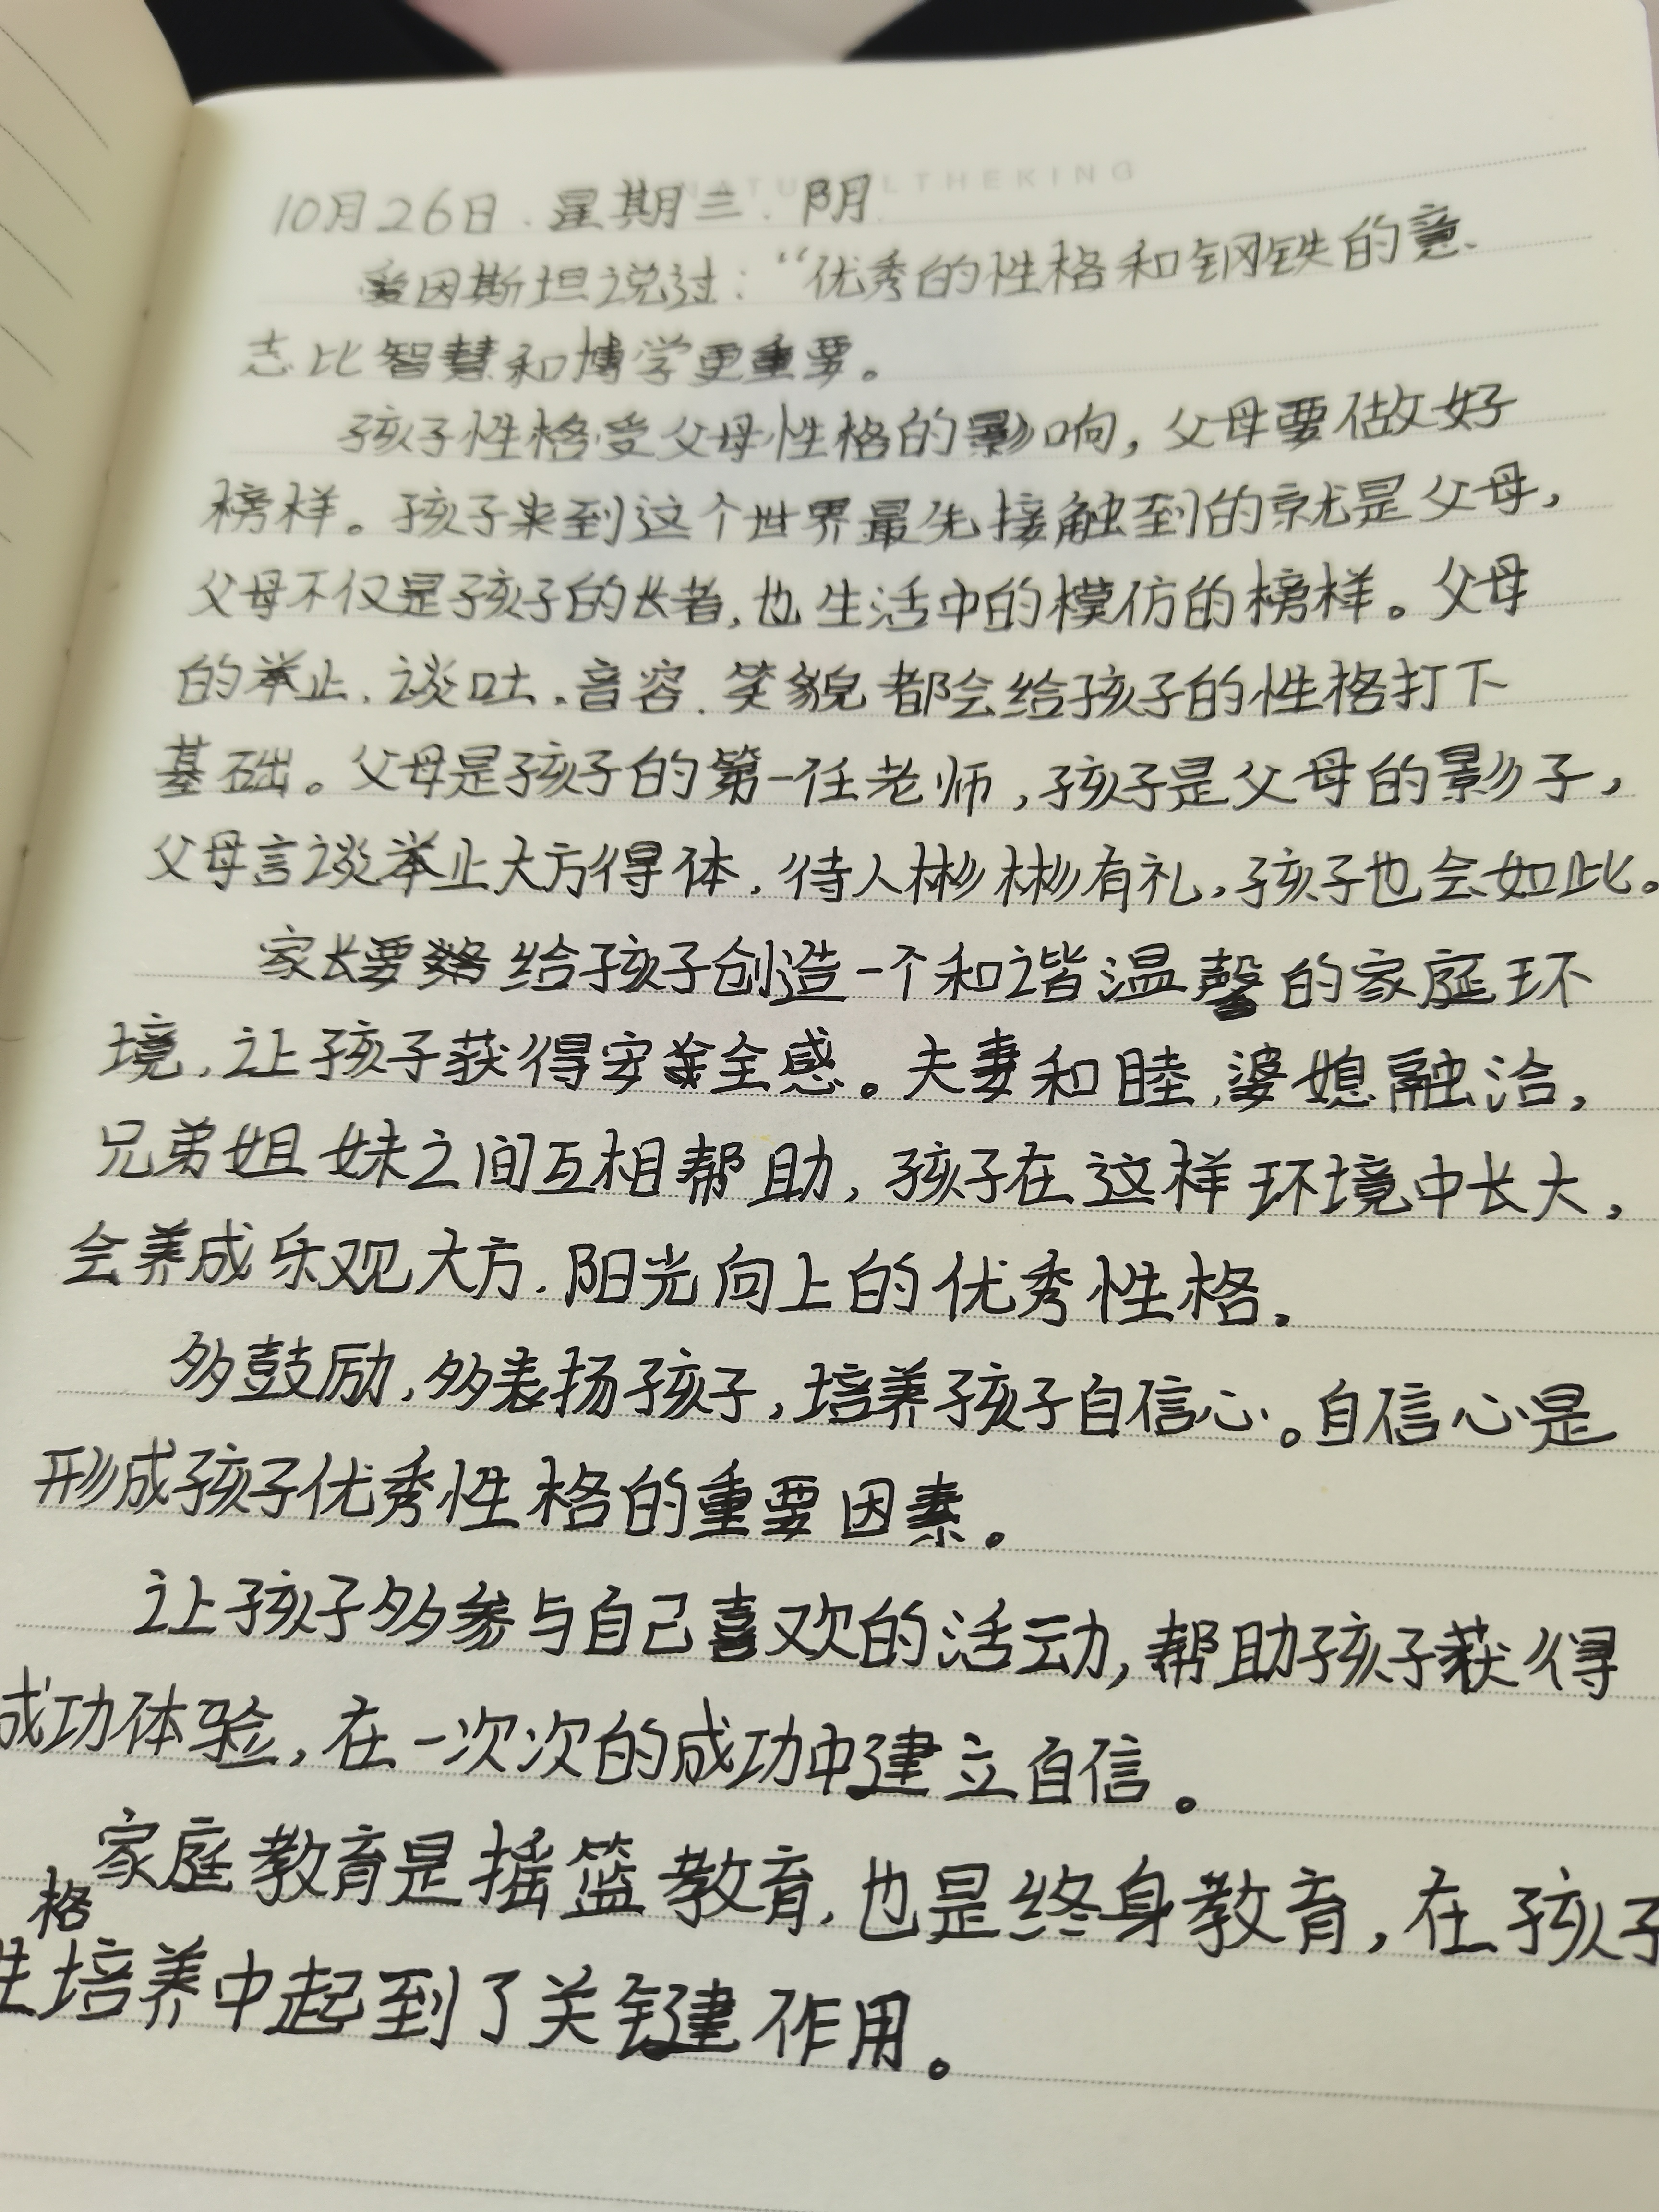 NATU LTHEKING
10月26日.星期三.阴
爱因斯坦说过:“优秀的性格和钢铁的意
志比智慧和博学更重要。
孩子性格受父母性格的影响,父母要做好
榜样。孩子来到这个世界最先接触到的就是父母,
父母不仅是孩子的长者,也生活中的模仿的榜样。父母
的举止、谈吐、音容、笑貌都会给孩子的性格打下
基础。父母是孩子的第一任老师,孩子是父母的影子,
父母言谈举止大方得体,待人彬彬有礼,孩子也会如此。
家长要给孩子创造一个和谐温馨的家庭环
境,让孩子获得安全感。夫妻和睦,婆媳融洽,
兄弟姐妹之间互相帮助,孩子在这样环境中长大,
会养成乐观大方、阳光向上的优秀性格。
多鼓励,多表扬孩子,培养孩子自信心。自信心是
形成孩子优秀性格的重要因素。
让孩子多参与自己喜欢的活动,帮助孩子获得
成功体验,在一次次的成功中建立自信。
家庭教育是摇篮教育,也是终身教育,在孩子
性格培养中起到了关键作用。